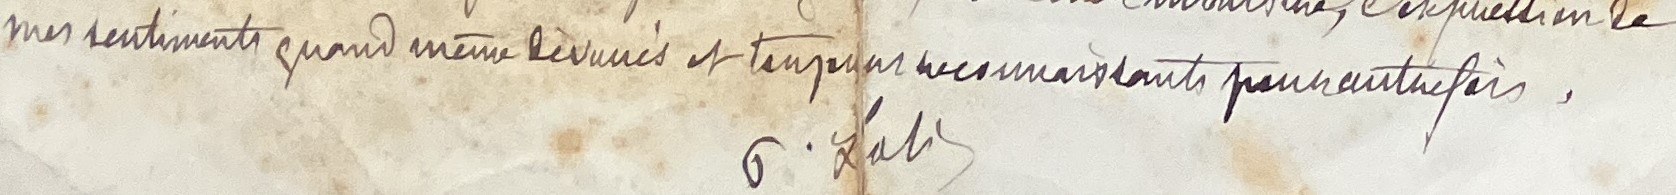 l'expression de
mes sentiments quand même dévoués et toujours reconnaissants pour autrefois.
P. Loti